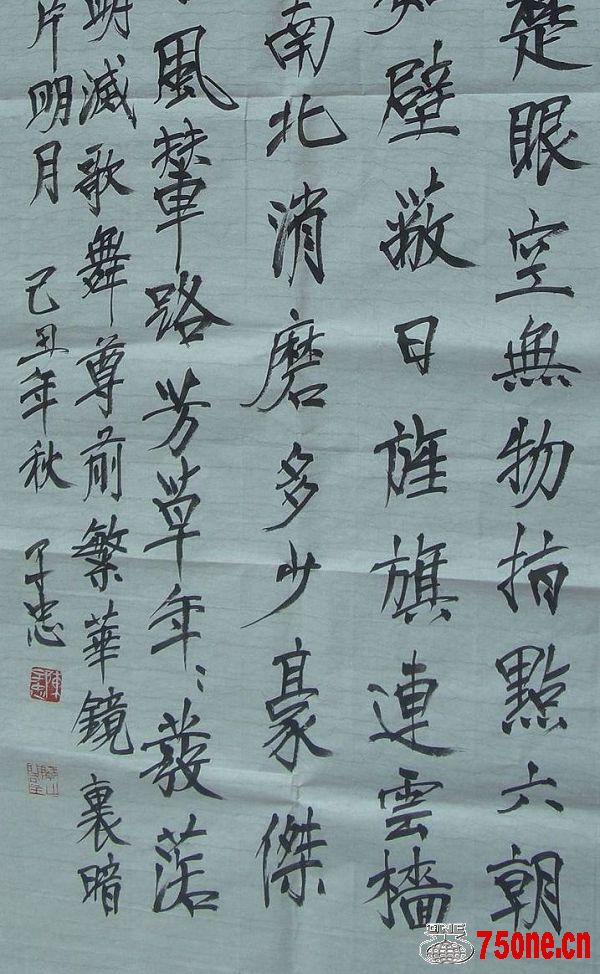 楚眼空無物指點六朝
如壁蔽日旌旗連雲檣
南北消磨多少豪傑
風輦路芳草年々發落
明滅歌舞尊前繁華鏡裏暗
片明月 己丑年秋 子忠
ONE
75one.cn